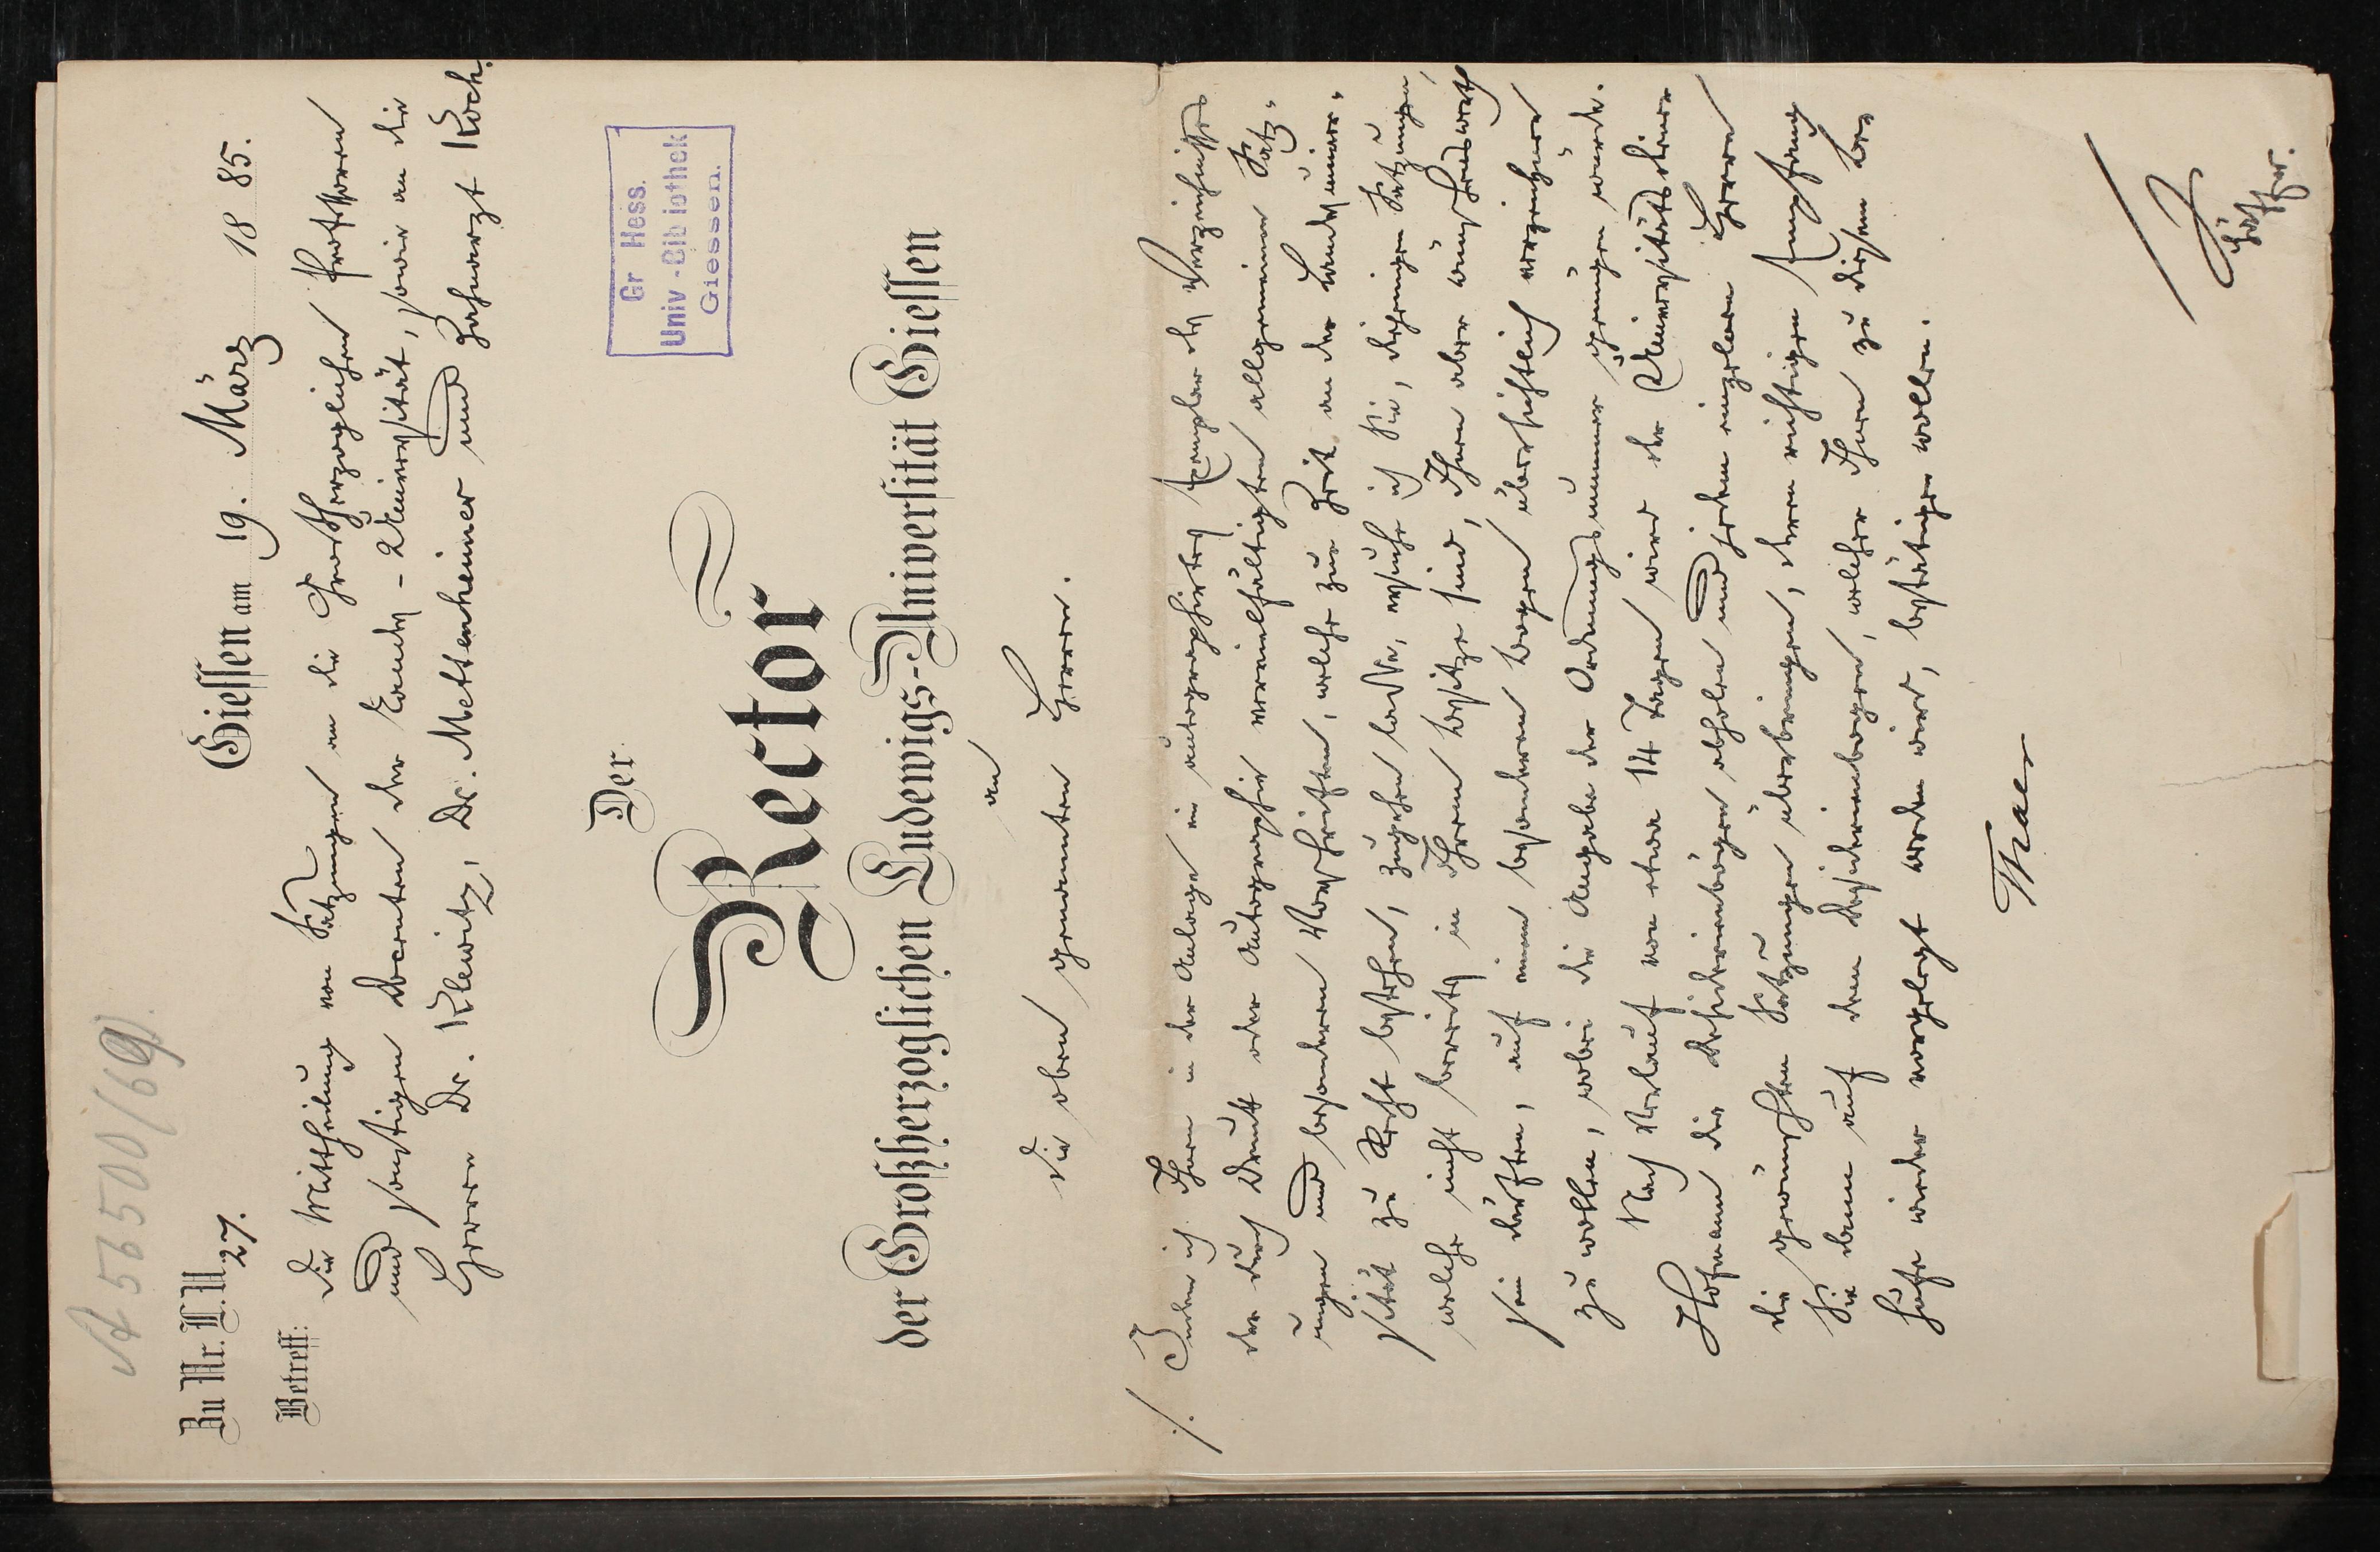 A 56500/69)
Zu Nr. L. U. 27.
Giessen am 19. März 1885.
Betreff: Die Mittheilung von Satzungen an die Großherzoglichen Professoren
und sonstigen Docenten der Landes-Universität, sowie an die
Herren Dr. Klewitz, Dr. Mettenheimer und Zahnarzt Koch.
Gr Hess.
Univ-Bibliothek
Giessen.
Der
Rector
der Großherzoglichen Ludewigs-Universität Giessen
an
die oben genannten Herren.
./. Indem ich Ihnen in der Anlage ein autographirtes Exemplar des Verzeichnisses
der durch Druck oder Autographie vervielfältigten allgemeinen Satz-
ungen und besonderen Vorschriften, welche zur Zeit an der Landesuniver-
sität zu Recht bestehen, zugehen lasse, ersuche ich Sie, diejenigen Satzungen,
welche nicht bereits in Ihrem Besitze sind, Ihnen aber wünschenswerth
sein dürften, auf einem besonderen Bogen übersichtlich verzeichnen
zu wollen, wobei die Angabe der Ordnungsnummer genügen würde.
Nach Verlauf von etwa 14 Tagen wird der Universitätsdiener
Hofmann die Desiderienbögen abholen und jedem einzelnen Herrn
die gewünschten Satzungen überbringen, deren richtigen Empfang
Sie dann auf dem Desiderienbogen, welcher Ihnen zu diesem Be-
hufe wieder vorgelegt werden wird, bestätigen wollen.
Thaer